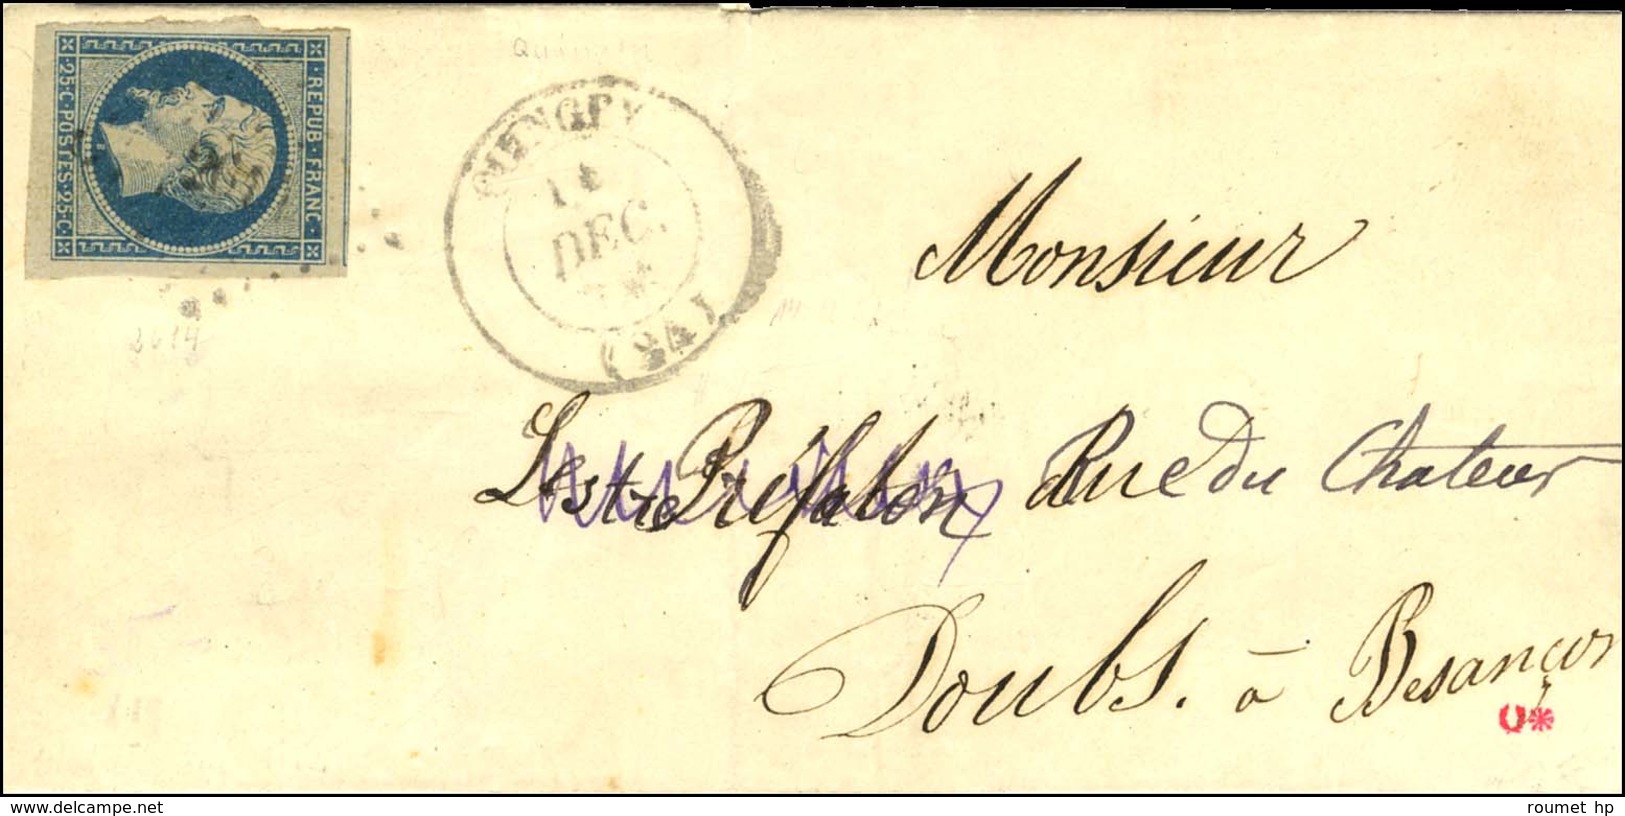 REPUB·FRANC·
·25·C·POSTES·25·C·
QUINGEY
14
DEC.
(24)
3614
Monsieur
Lestre Préfalon Rue du Chateur
Doubs. à Besançon
www.delcampe.net
roumet hp